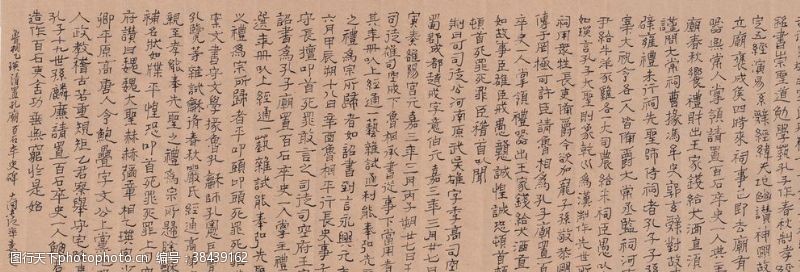 聖道勉□藝孔子作春秋制孝經
五經演易系辭經緯天地幽讚神明
立廟褒成侯四時來祠事已即去廟有
器無常人掌領請置百石卒史一人典主
廟春秋饗禮財出王家錢給犬酒直須
謹問大常祠曹掾馮牟史郭玄辭對故
辟雍禮未行祠先聖師侍祠者孔子子孫
宰大祝令各一人皆備爵大常丞監祠河
尹給牛羊豕雞各一大司農給米祠臣愚以
如瑛言孔子大聖則象乾坤為漢制作先世
祠用衆牲長吏備爵今欲加寵子孫敬恭
傳于罔極可許臣請魯相為孔子廟置百
卒史一人掌領禮器出王家錢給犬酒直
如故事臣雄臣戒愚戇誠惶誠恐頓首
頓首死罪死罪臣稽首以聞
制曰可司徒公河南原武吳雄字季高司空
蜀郡成都趙戒字意伯元嘉三年三月廿七
寅奏雒陽宮元嘉三年三月丙子朔廿七日
司徒雄司空戒下魯相承書從事下當用者
其年卌以上經通一藝雜試通利能奉弘先
之禮為宗所歸者如詔書書到言永興元
六月甲辰朔十八日辛酉魯相平行長史事
守長擅叩頭死罪敢言之司徒司空府壬
詔書為孔子廟置百石卒史一人掌主禮
選年卌以上經通一藝雜試能奉弘先聖
之禮為宗所歸者平叩頭叩頭死罪死罪
案文書守文學掾魯孔龢師孔憲戶
孔覽等雜試龢脩春秋嚴氏經通高
親至孝能奉先聖之禮為宗所歸除龢
補名狀如牒平惶恐叩頭死罪死罪上
府讚曰巍巍大聖赫赫彌章相乙瑛
卿平原高唐人令鮑疊字文公上黨
人政教稽古若重規矩乙君察舉守宅
孔子十九世孫麟廉請置百石卒史一人鮑
造作百石吏舍功垂無窮於是始
图行天下 PHOTOPHOTO.CN No.38439162